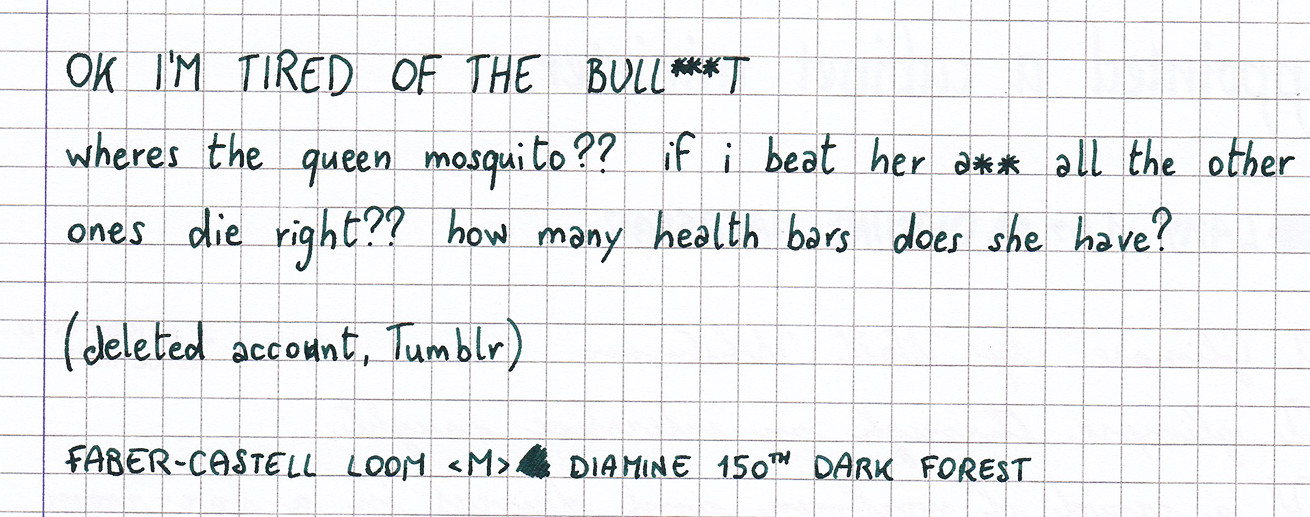 OK I'M TIRED OF THE BULL***T
wheres the queen mosquito?? if i beat her a** all the other
ones die right?? how many health bars does she have?
(deleted account, Tumblr)
FABER-CASTELL LOOM <M> DIAMINE 150TH DARK FOREST